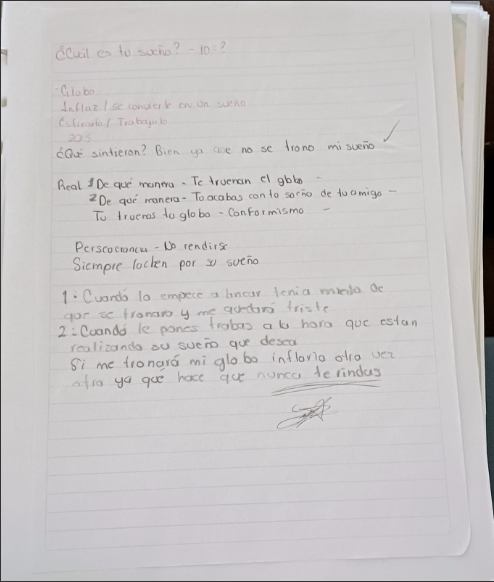 ¿Cuál es tu sueño? - 10:?
Globo
Inflar / se convierte en un sueño
Estirarlo / Trabajalo
¿Qué sintieron? Bien ya que no se trono mi sueño
Real 1 De qué manera - Te truenan el globo -
2 De qué manera - Tu acabas con tu sueño de tu amigo -
Tu truenas tu globo - Conformismo -
- No rendirse
Siempre luchen por su sueño
1: Cuando lo empece a tenia miedo de
que se tronara y me quedara triste
2: Cuando le pones trabas a la hora que estan
realizando su sueño que desea
Si me tronará mi globo inflaria otra vez
otro ya que hace que nunca te rindas